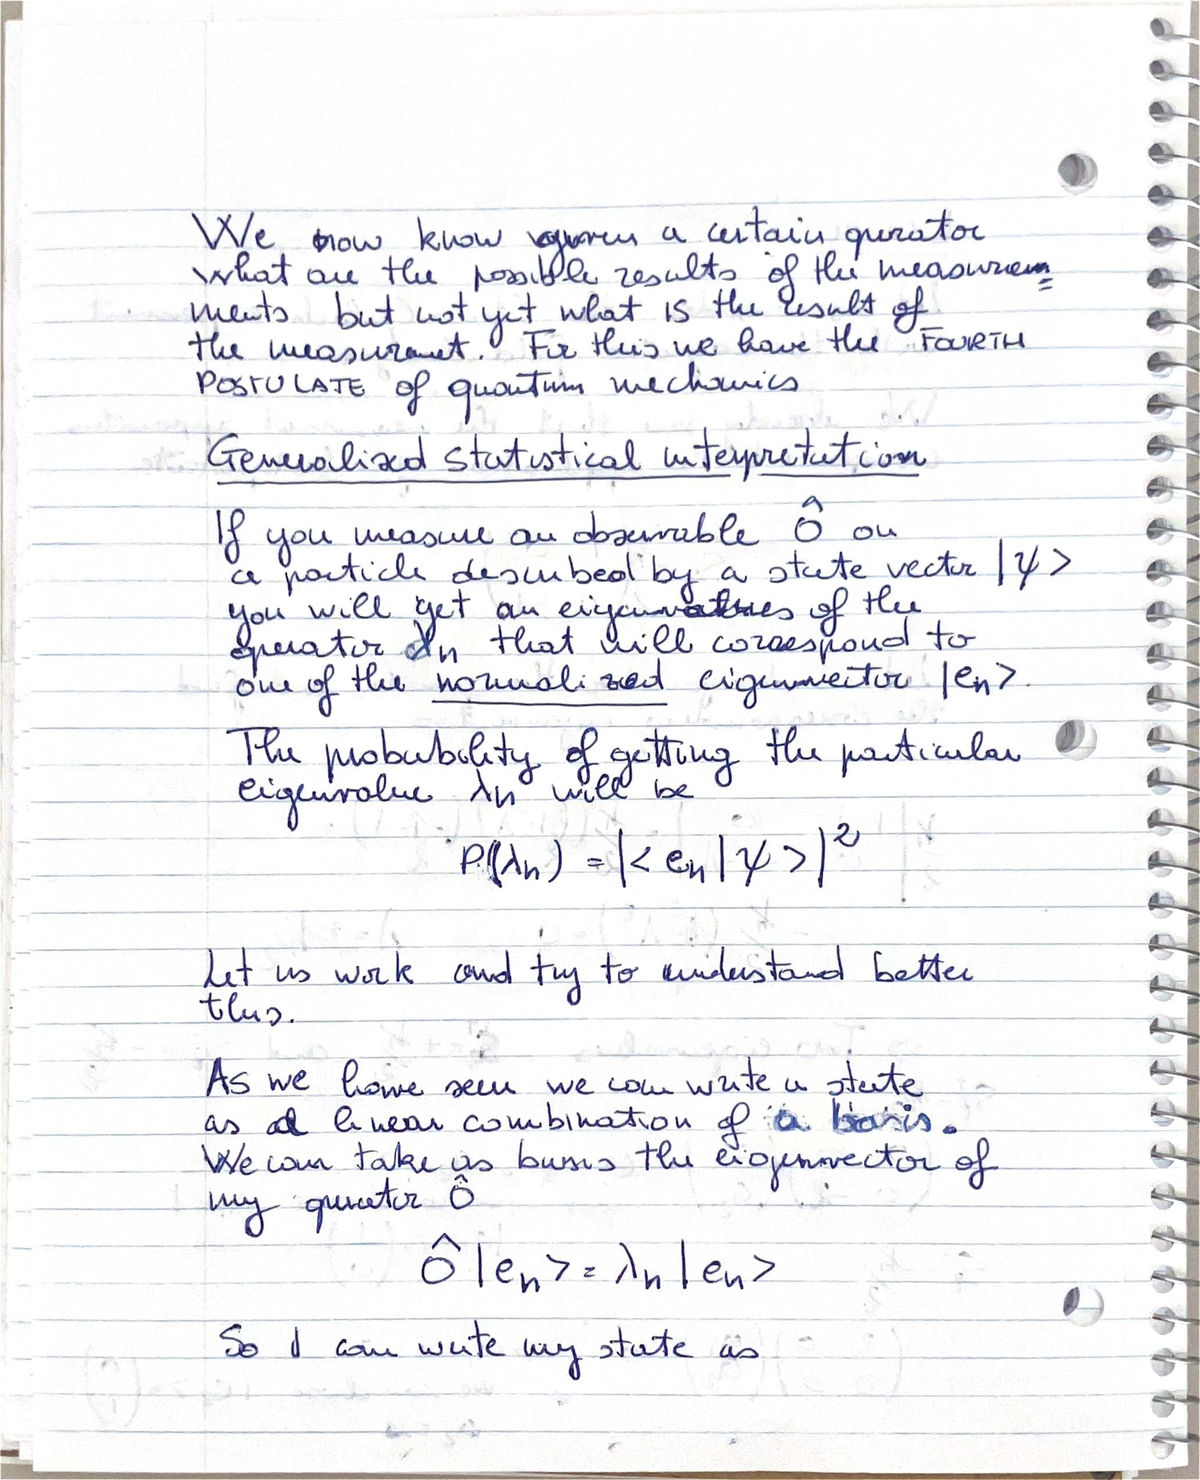 We now know given a certain operator
what are the possible results of the measurem=
ments but not yet what is the result of
the measurement. For this we have the FOURTH
POSTULATE of quantum mechanics
Generalized statistical interpretation
If you measure an observable Ô on
a particle described by a state vector |ψ>
you will get an eigenvalues of the
operator λn that will correspond to
one of the normalized eigenvector |en>.
The probability of getting the particular
eigenvalue λn will be
P(λn) = |<en|ψ>|²
Let us work and try to understand better
this.
As we have seen we can write a state
as a linear combination of a basis.
We can take as basis the eigenvector of
my operator Ô
Ô|en> = λn|en>
So I can write my state as